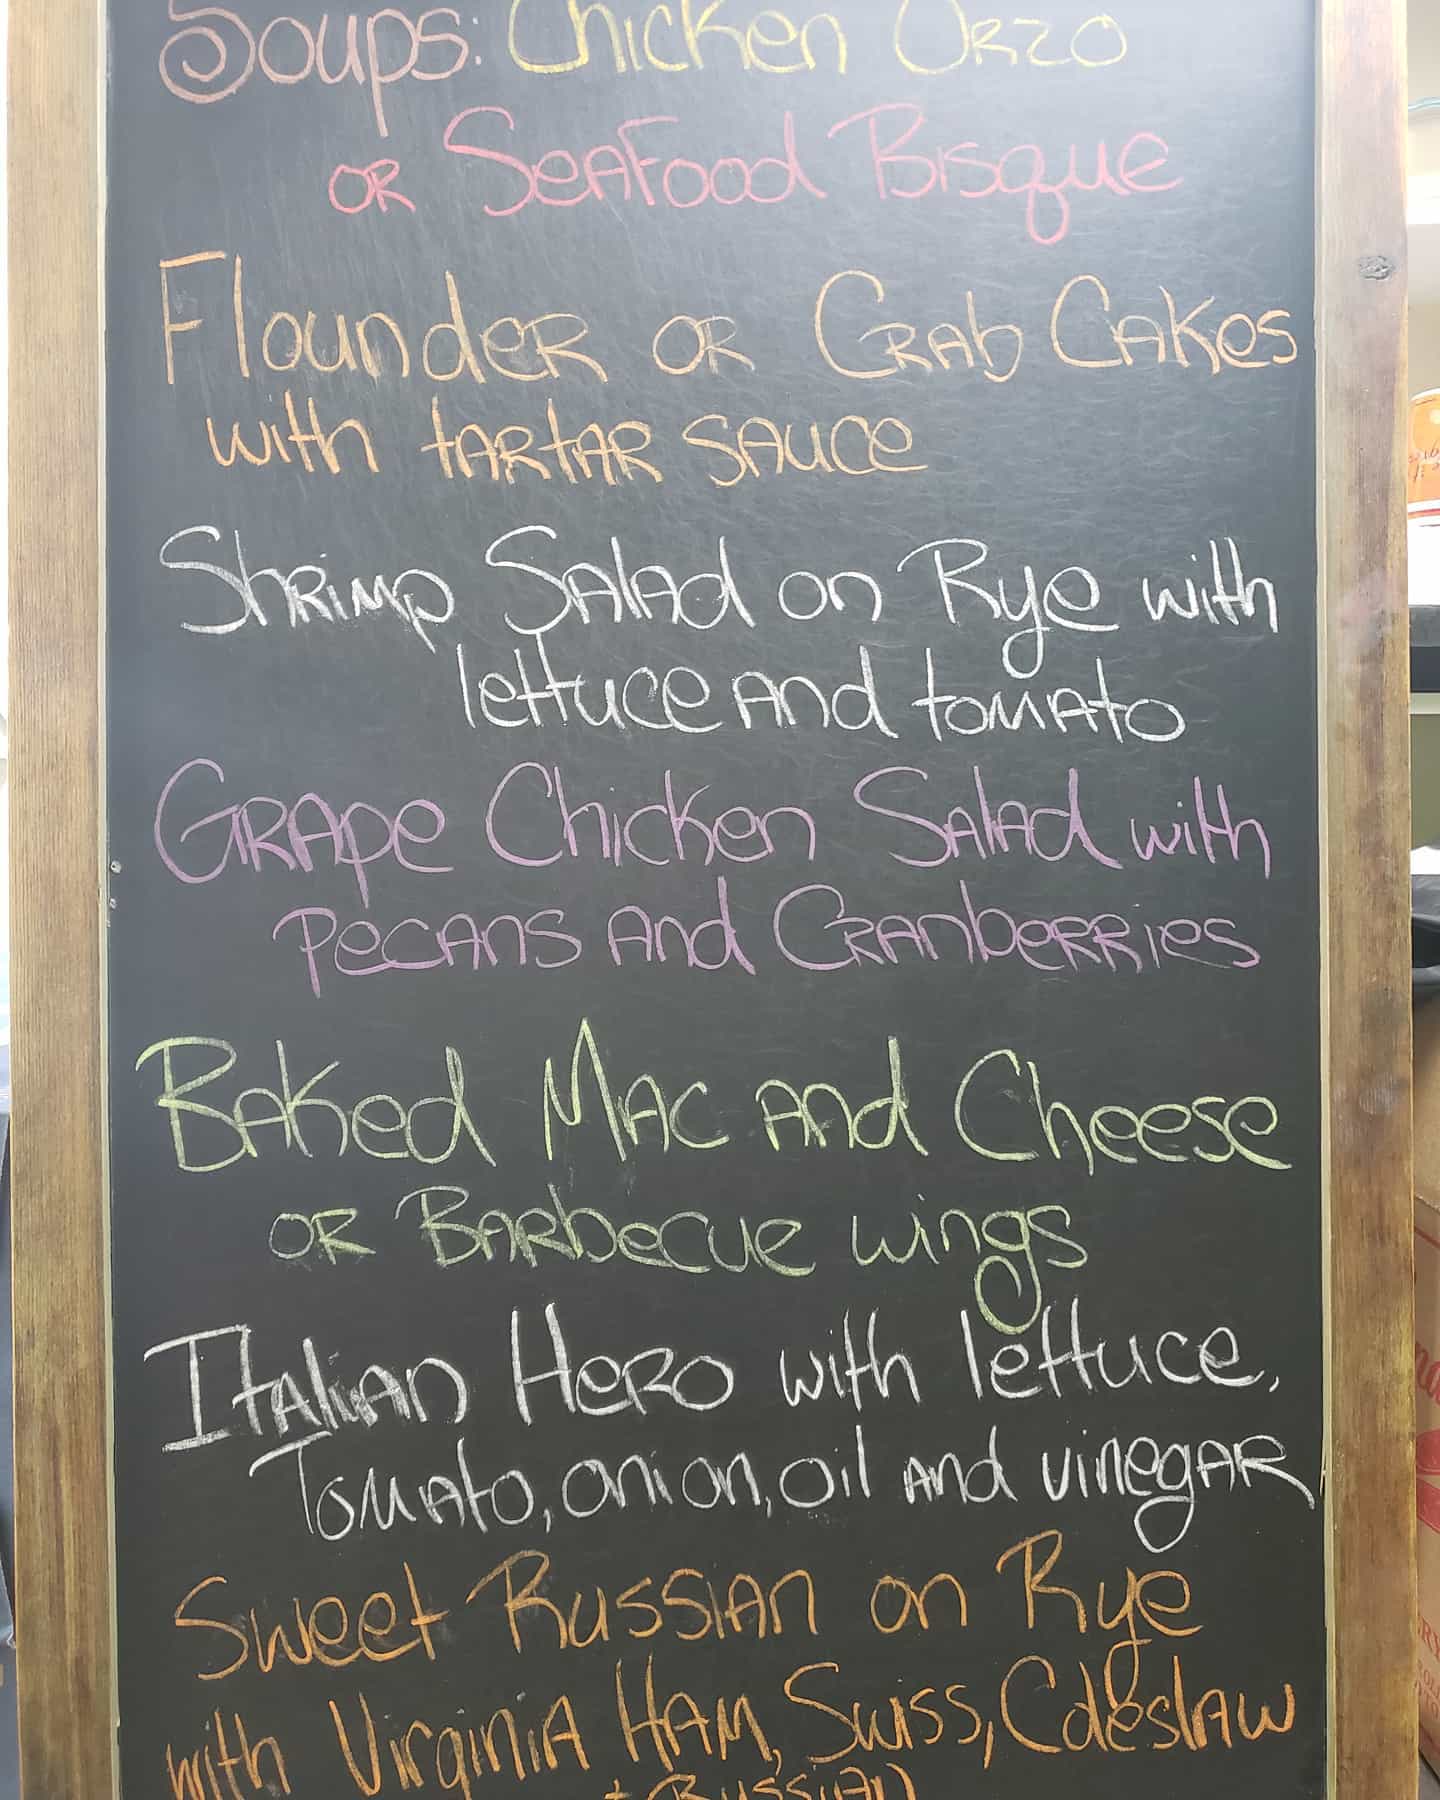 Soups: Chicken Orzo
or Seafood Bisque
Flounder or Crab Cakes
with tartar sauce
Shrimp Salad on Rye with
lettuce and tomato
Grape Chicken Salad with
Pecans and Cranberries
Baked Mac and Cheese
or Barbecue wings
Italian Hero with lettuce,
Tomato, onion, oil and vinegar
Sweet Russian on Rye
with Virginia Ham, Swiss, Coleslaw
+ Russian